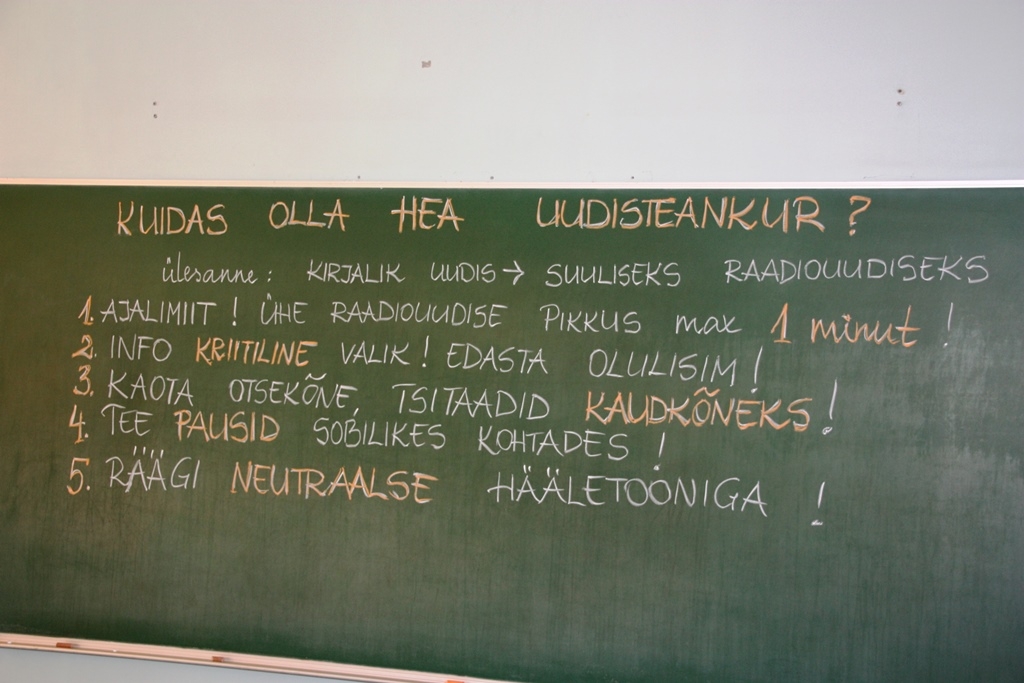 KUIDAS OLLA HEA UUDISTEANKUR?
ülesanne: KIRJALIK UUDIS → SUULISEKS RAADIOUUDISEKS
1. AJALIMIIT! ÜHE RAADIOUUDISE PIKKUS max 1 minut!
2. INFO KRIITILINE VALIK! EDASTA OLULISIM!
3. KAOTA OTSEKÕNE, TSITAADID KAUDKÕNEKS!
4. TEE PAUSID SOBILIKES KOHTADES!
5. RÄÄGI NEUTRAALSE HÄÄLETOONIGA!